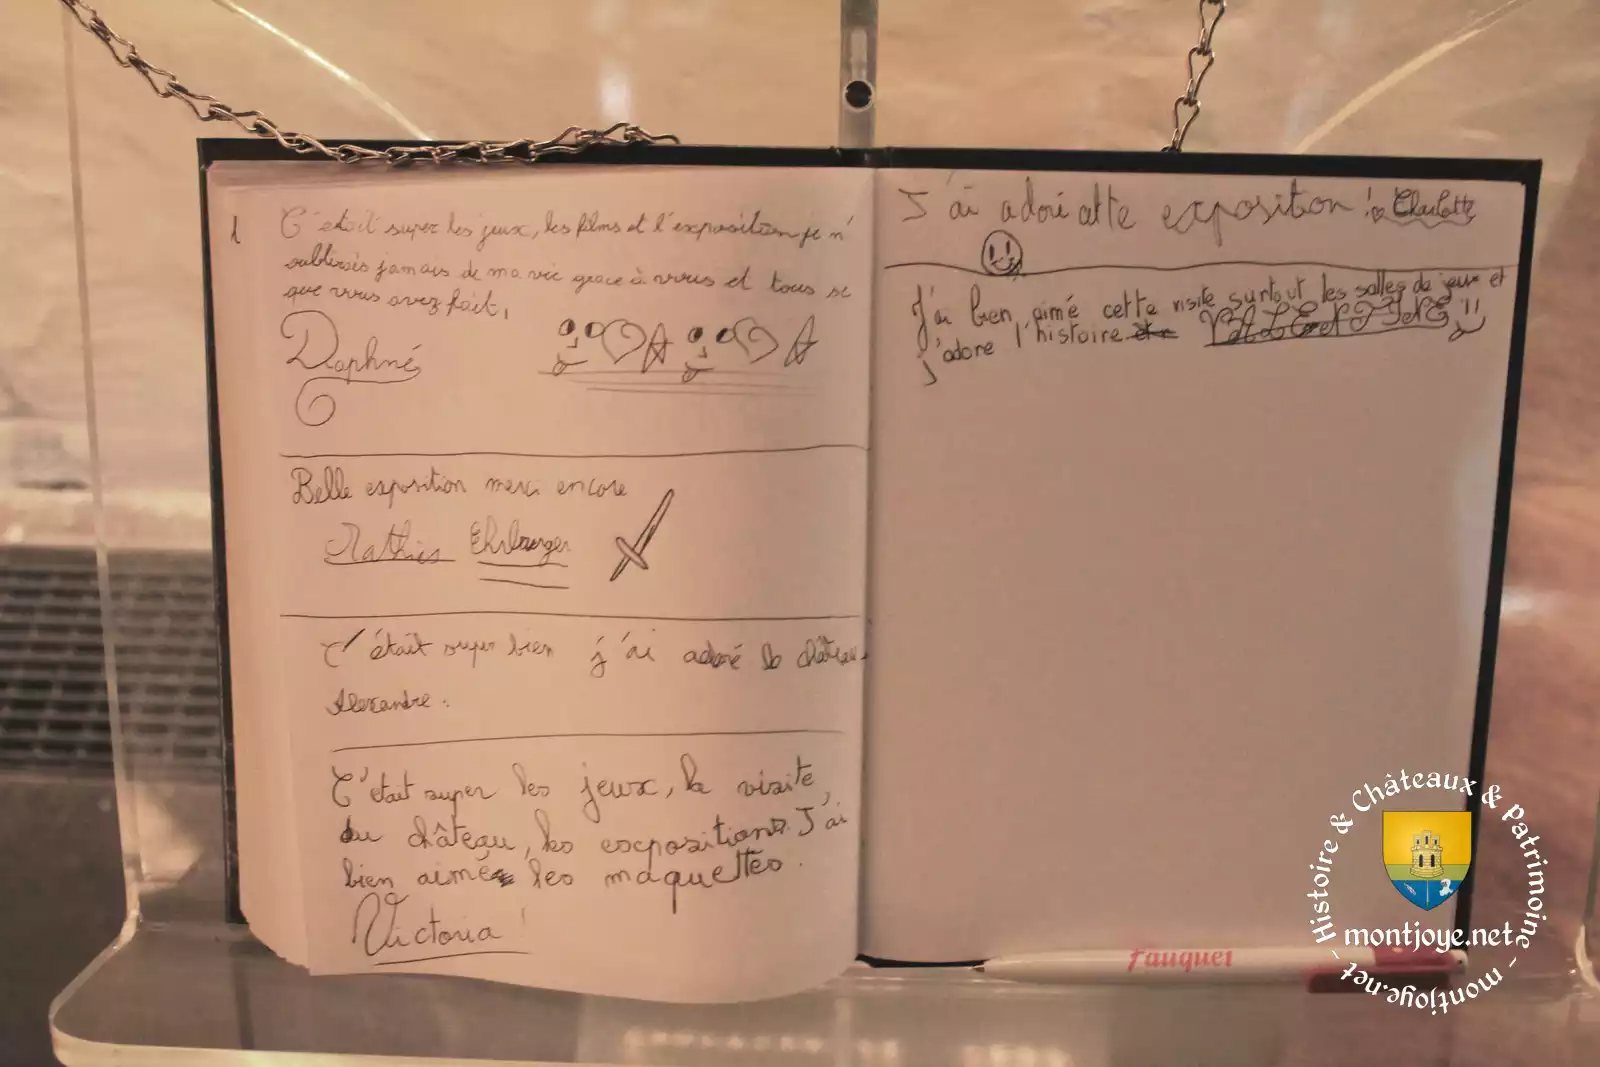 1
C'était super les jeux, les films et l'exposition je n'
oublirais jamais de ma vie grace à vous et tous se
que vous avez fait,
Daphné
Belle exposition merci encore
Mathis
C'était super bien j'ai adoré le château.
Alexandre.
C'était super les jeux, la visite,
du château, les expositions. J'ai
bien aimé les maquettes.
Victoria !
J'ai adoré cette exposition ! Charlotte
J'ai bien aimé cette visite surtout les salles de jeux et
j'adore l'histoire VALENTINE !!
Fauquet
Histoire & Châteaux & Patrimoine - montjoye.net -
montjoye.net